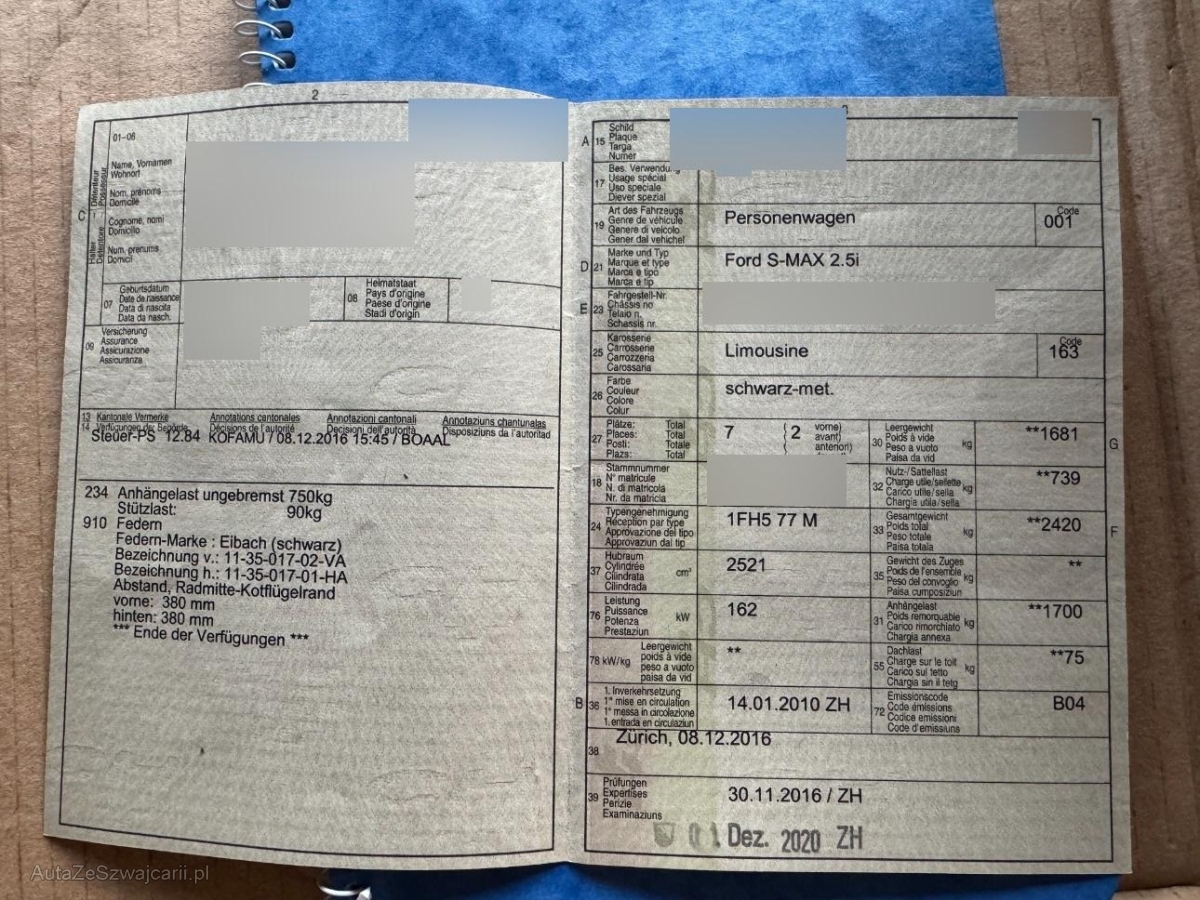 2
01-06
C
Halter
Détenteur
Detentore
Possessur
Name, Vornamen
Wohnort
Nom, prénoms
Domicile
Cognome, nomi
Domicilio
Num, prenums
Domicil
07
Geburtsdatum
Date de naissance
Data di nascita
Data da nasch.
08
Heimatstaat
Pays d'origine
Paese d'origine
Stadi d'origin
09
Versicherung
Assurance
Assicurazione
Assicuranza
13 Kantonale Vermerke Annotations cantonales Annotazioni cantonali Annotaziuns chantunalas
14 Verfügungen der Behörde Décisions de l'autorité Decisioni dell'autorità Disposiziuns da l'autoritad
Steuer-PS 12.84 KOFAMU / 08.12.2016 15:45 / BOAAL
234 Anhängelast ungebremst 750kg
Stützlast: 90kg
910 Federn
Federn-Marke : Eibach (schwarz)
Bezeichnung v.: 11-35-017-02-VA
Bezeichnung h.: 11-35-017-01-HA
Abstand, Radmitte-Kotflügelrand
vorne: 380 mm
hinten: 380 mm
*** Ende der Verfügungen ***
A 15
Schild
Plaque
Targa
Numer
17
Bes. Verwendung
Usage spécial
Uso speciale
Diever spezial
19
Art des Fahrzeugs
Genre de véhicule
Genere di veicolo
Gener dal vehichel
Personenwagen
Code
001
D 21
Marke und Typ
Marque et type
Marca e tipo
Marca e tip
Ford S-MAX 2.5i
E 23
Fahrgestell-Nr.
Châssis no
Telaio n.
Schassis nr.
25
Karosserie
Carrosserie
Carrozzeria
Carossaria
Limousine
Code
163
26
Farbe
Couleur
Colore
Colur
schwarz-met.
27
Plätze: Total
Places: Total
Posti: Totale
Plazs: Total
7 { 2
vorne)
avant)
anteriori)
30
Leergewicht
Poids à vide
Peso a vuoto
Paisa da vid
kg
**1681
G
18
Stammnummer
N° matricule
N. di matricola
Nr. da matricla
32
Nutz-/Sattellast
Charge utile/sellette
Carico utile/sella
Chargia utila/sella
kg
**739
24
Typengenehmigung
Réception par type
Approvazione del tipo
Approvaziun dal tip
1FH5 77 M
33
Gesamtgewicht
Poids total
Peso totale
Paisa totala
kg
**2420
F
37
Hubraum
Cylindrée
Cilindrata
Cilindrada
cm³
2521
35
Gewicht des Zuges
Poids de l'ensemble
Peso del convoglio
Paisa cumposiziun
kg
**
76
Leistung
Puissance
Potenza
Prestaziun
kW
162
31
Anhängelast
Poids remorquable
Carico rimorchiato
Chargia annexa
kg
**1700
78 kW/kg
Leergewicht
poids à vide
peso a vuoto
paisa da vid
**
55
Dachlast
Charge sur le toit
Carico sul tetto
Chargia sin il tetg
kg
**75
B 36
1. Inverkehrsetzung
1re mise en circulation
1a messa in circolazione
1. entrada en circulaziun
14.01.2010 ZH
72
Emissionscode
Code émissions
Codice emissioni
Code d'emissiuns
B04
38
Zürich, 08.12.2016
39
Prüfungen
Expertises
Perizie
Examinaziuns
30.11.2016 / ZH
01 Dez. 2020 ZH
AutaZeSzwajcarii.pl